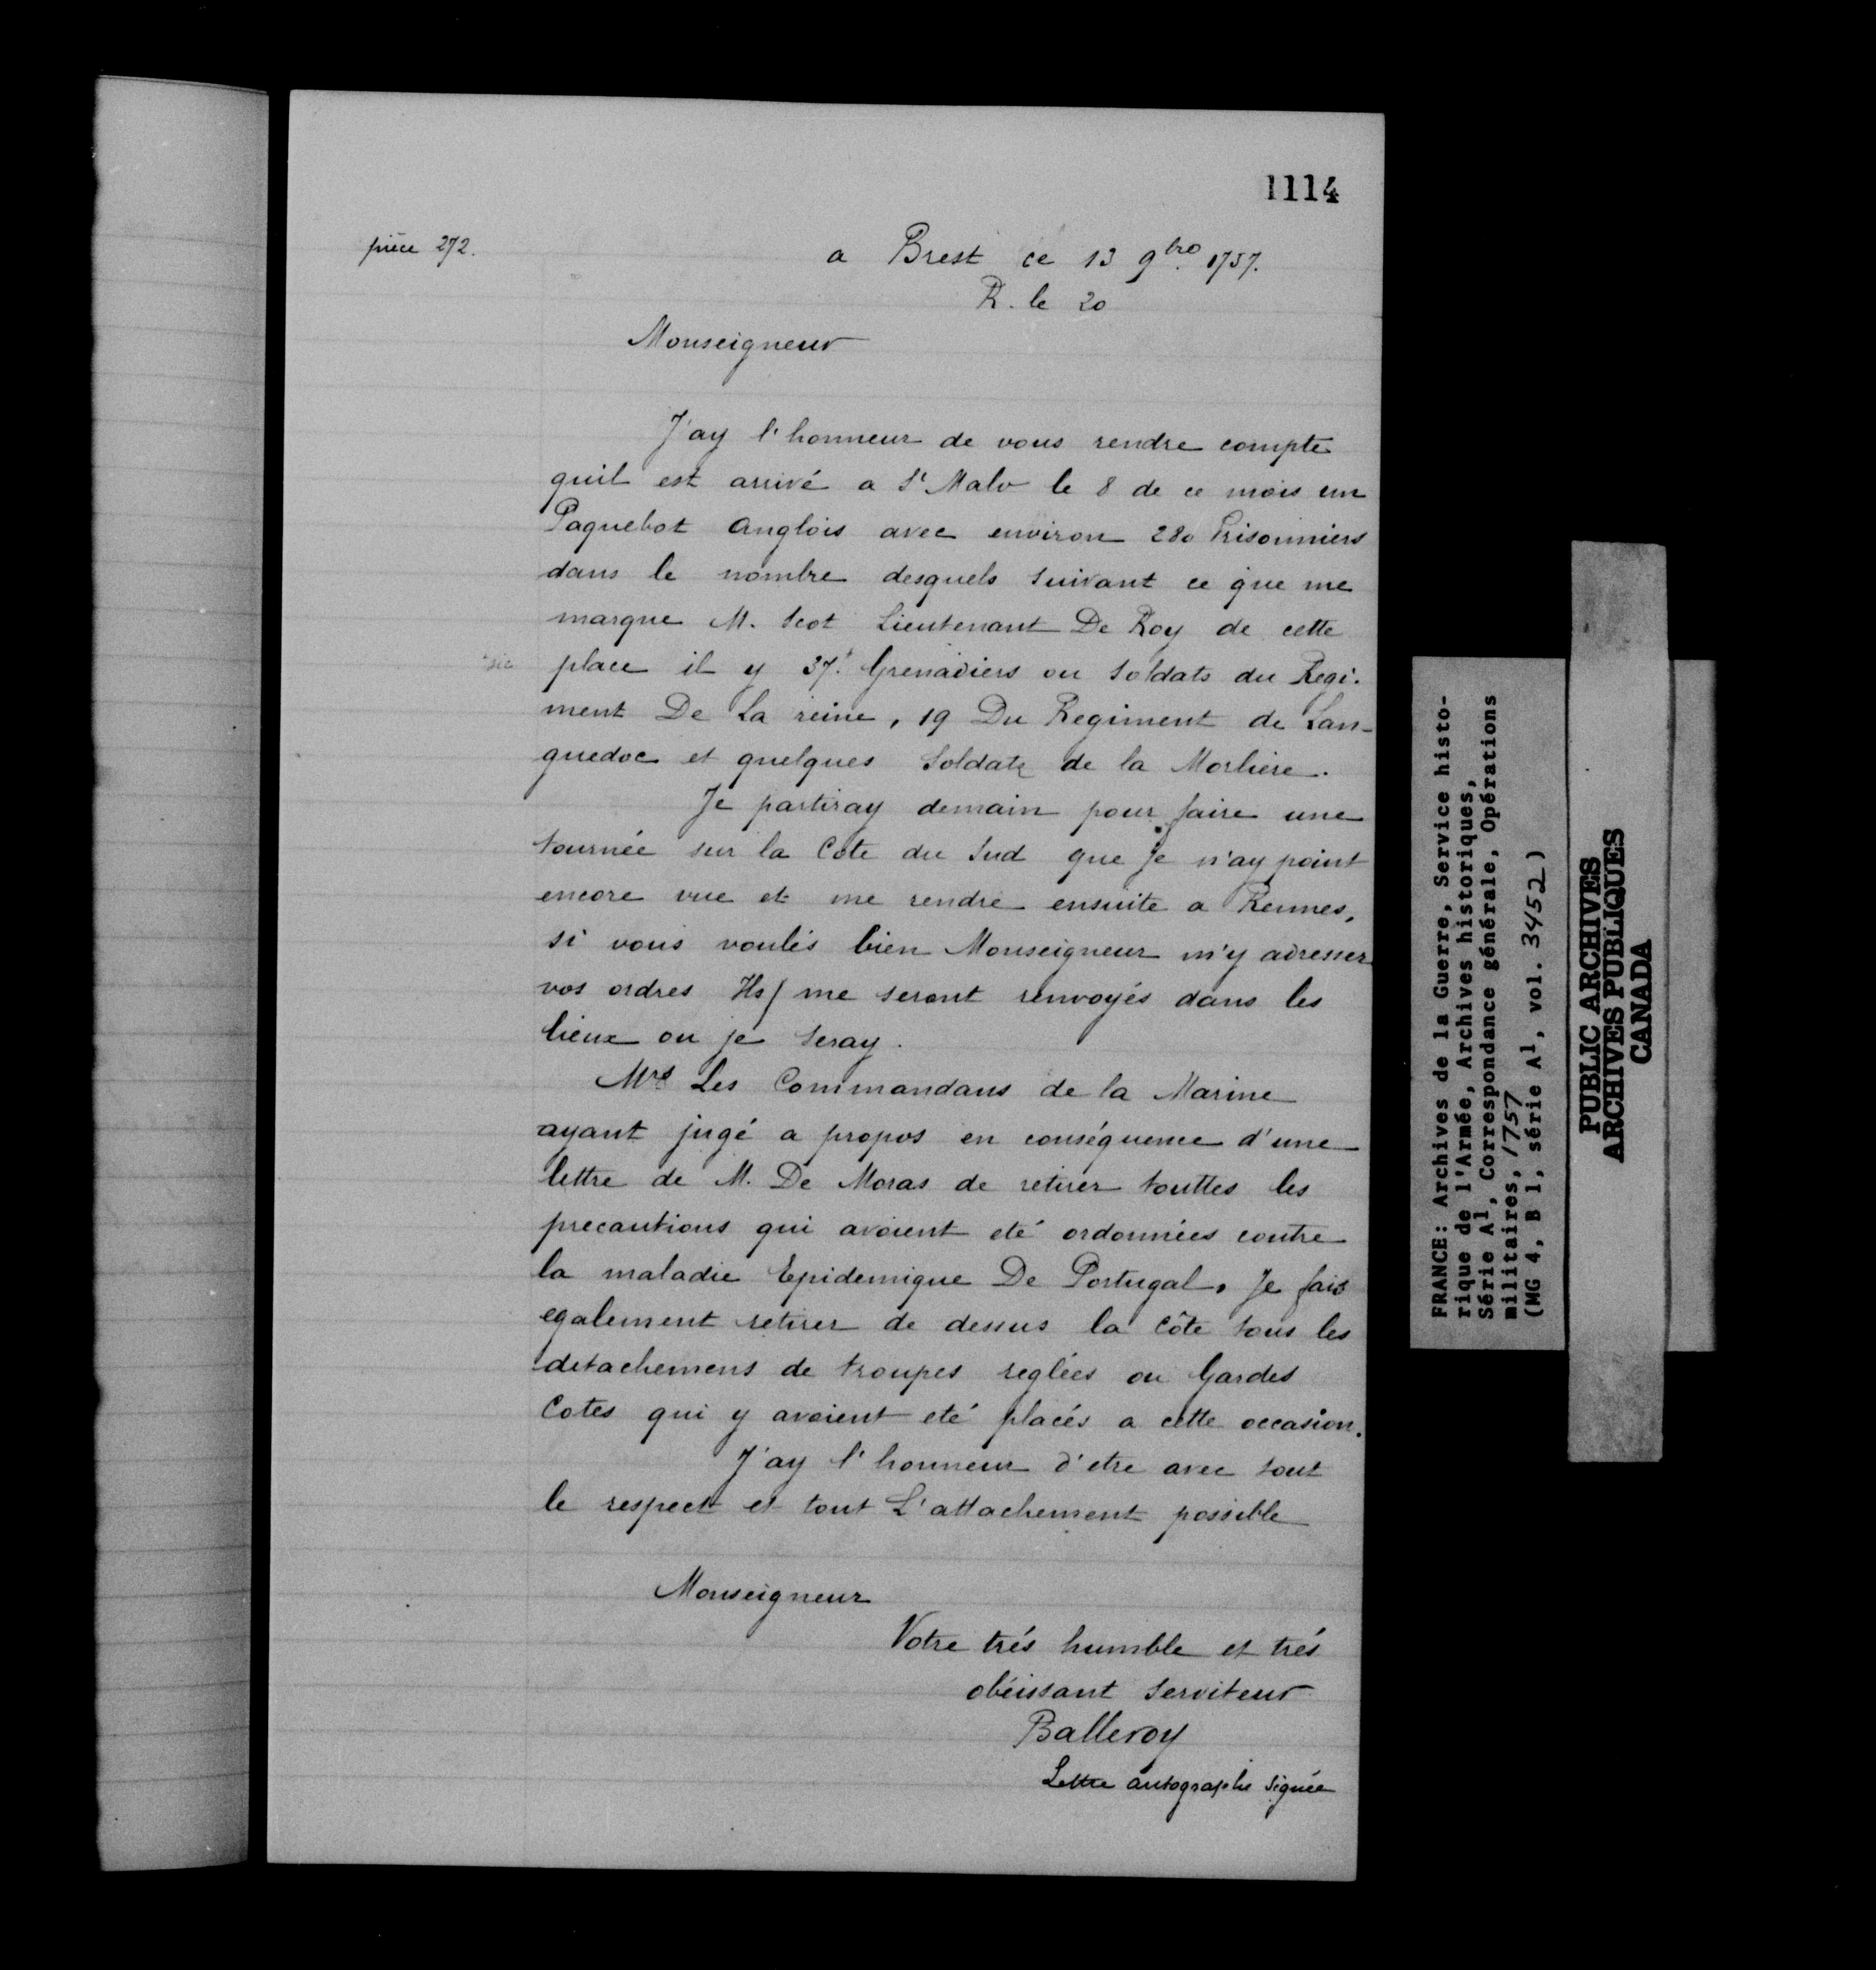 1114
pièce 272.
a Brest ce 13 9bre 1757.
R. le 20
Monseigneur
J'ay l'honneur de vous rendre compte
quil est arrivé a St Malo le 8 de ce mois un
Paquebot anglois avec environ 280 Prisonniers
dans le nombre desquels suivant ce que me
marque M. Scot Lieutenant De Roy de cette
*sic place il y 37* Grenadiers ou soldats du Regi-
ment De La reine, 19 Du Regiment de Lan-
guedoc et quelques Soldats de la Morliere.
Je partiray demain pour faire une
tournée sur la Cote du Sud que je n'ay point
encore vue et me rendre ensuite a Rennes,
si vous voulés bien Monseigneur m'y adresser
vos ordres Ils me seront renvoyés dans les
lieux ou je seray.
Mrs Les Commandans de la Marine
ayant jugé a propos en conséquence d'une
lettre de M. De Moras de retirer touttes les
precautions qui avoient eté ordonnées contre
la maladie Epidemique De Portugal, Je fais
egalement retirer de dessus la Côte tous les
detachemens de troupes reglées ou Gardes
Cotes qui y avoient eté placés a cette occasion.
J'ay l'honneur d'etre avec tout
le respect et tout L'attachement possible
Monseigneur
Votre trés humble et trés
obéissant serviteur
Balleroy
Lettre autographe signée
FRANCE: Archives de la Guerre, Service histo-
rique de l'Armée, Archives historiques,
Série A1, Correspondance générale, Opérations
militaires, 1757
(MG 4, B 1, série A1, vol. 3452)
PUBLIC ARCHIVES
ARCHIVES PUBLIQUES
CANADA